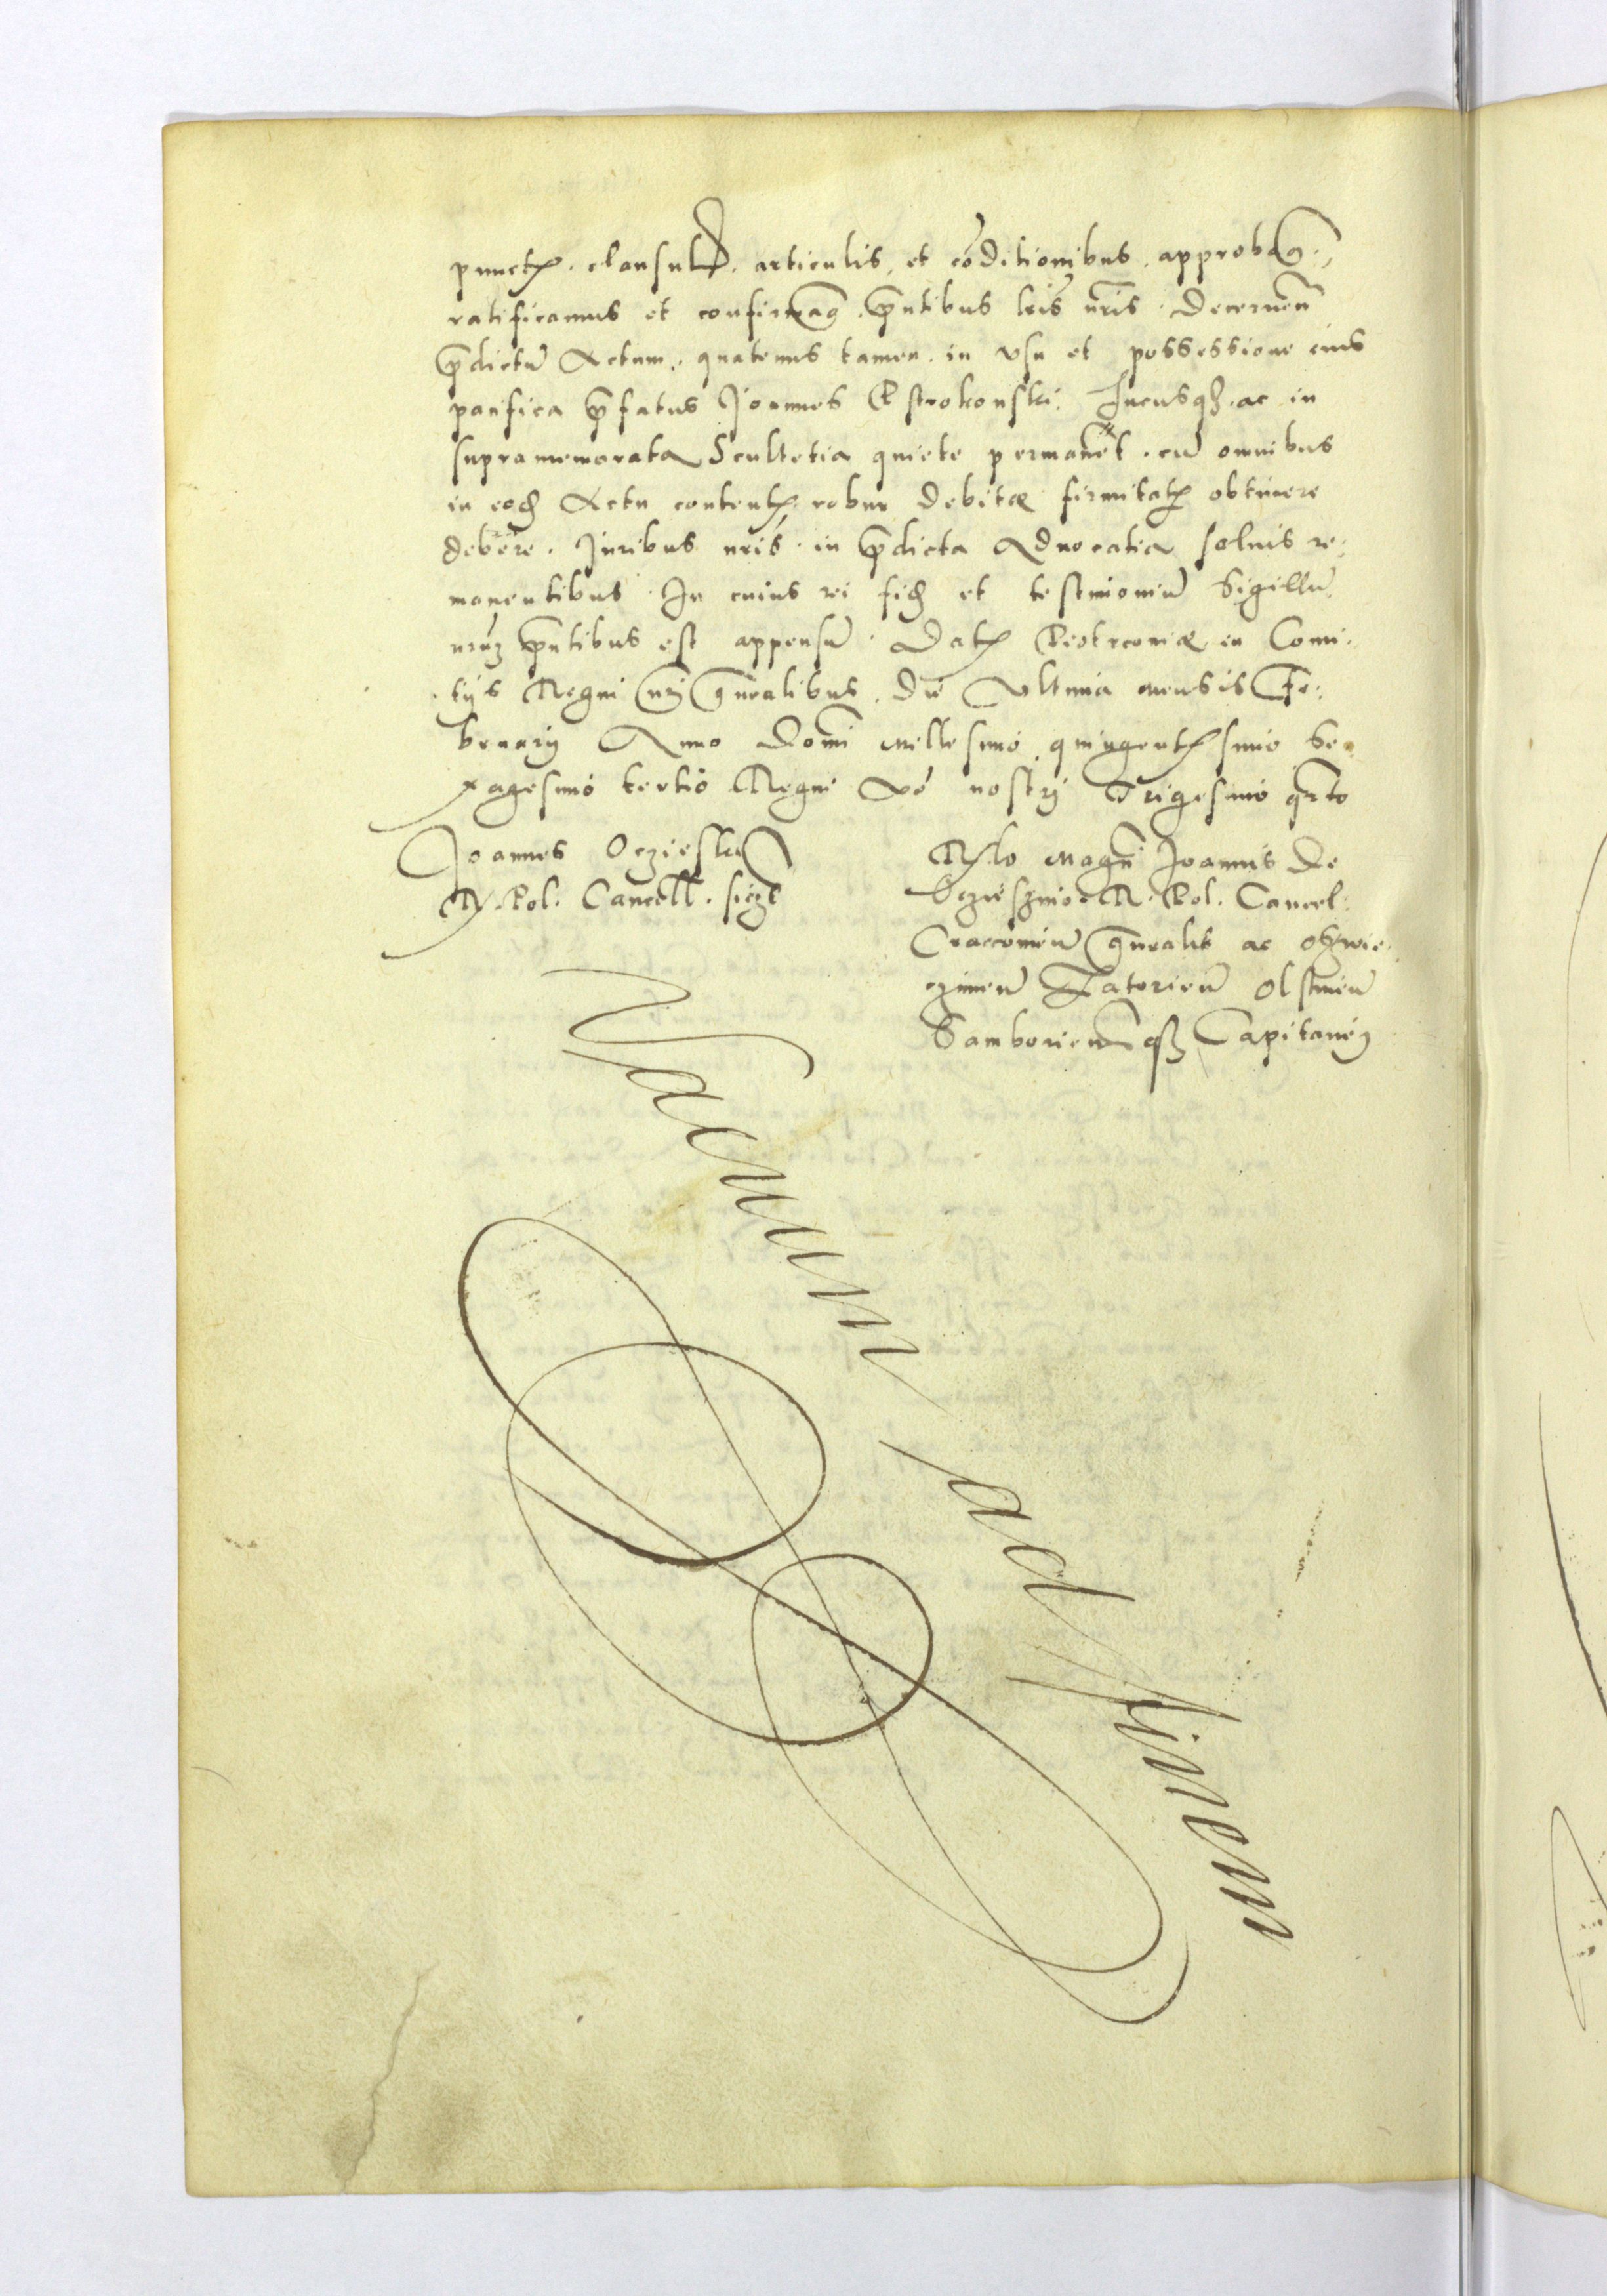 punctis. clausulis. articulis, et cōditionibus. approbam9.
ratificamus et confirmam9. pn̄tibus lr̄is nr̄is. Decernen̄
p̄dictū Actum. quatenus tamen. in vsu et possessione eius
pacifica p̄fatus Joannes Pstrokonski. hucusq3. ac in
supramemorata Scultetia quiete permanet. cū omnibus
in eod̄ Actu contentis robur debitæ firmitatis obtinere
debere. Juribus nr̄is in p̄dicta Aduocatia saluis re:
manentibus. In cuius rei fid̄ et testimoniū Sigillū
nr̄m pn̄tibus est appensū. Datis Piotrcouiæ in Comi:
tijs Regni nr̄i gn̄ralibus. die Vltima mensis Fe:
bruarij Anno Domī millesimo quingentesimo Se
xagesimo tertio Regni vō nostrj Trigesimo qr̄to
Joannes Oczieski
R. Pol. Cancell. sszt
Rlō Magn̄ Joannis De
Oczieszino R. Pol. Cancel:
Cracouien̄ gn̄ralis ac Oswie:
czimen̄ Zatorien̄ Olstinen̄
Samborien̄ q3 Capitanej
Vacuum ad finem